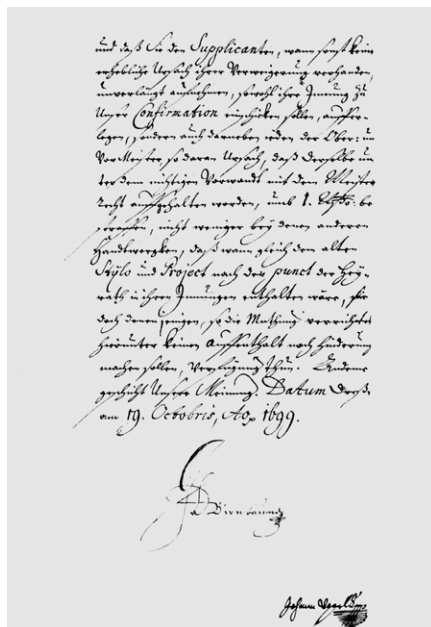 und daß Sie den Supplicanten, wann sonst keine
erhebliche Ursach ihrer Verweigerung verhanden,
unverlängt aufnehmen, sowohl ihre Innung zu
Unser Confirmation einschicken sollen, auffer-
legen, sondern auch darneben jeden der Ober: u:
Vor Meister, so daran Ursach, daß derselbe un
ter dem nichtigen Vorwandt mit dem Meister
Recht auffgehalten worden, umb 1. be
straffen, nicht weniger bey denen anderen
Handtwergken, daß wann gleich dem alten
Stylo und Project nach der punct der Hey-
rath in ihren Innungen enthalten wäre, sie
doch denenjenigen, so die Muthung verrichtet
hierunter keinen Auffenthalt noch hinderung
machen sollen, Verfügung thun. Andeme
geschicht Unsere Meinung. Datum Dreß.
am 19. Octobris, Ao 1699.
Birnbaum
Johann